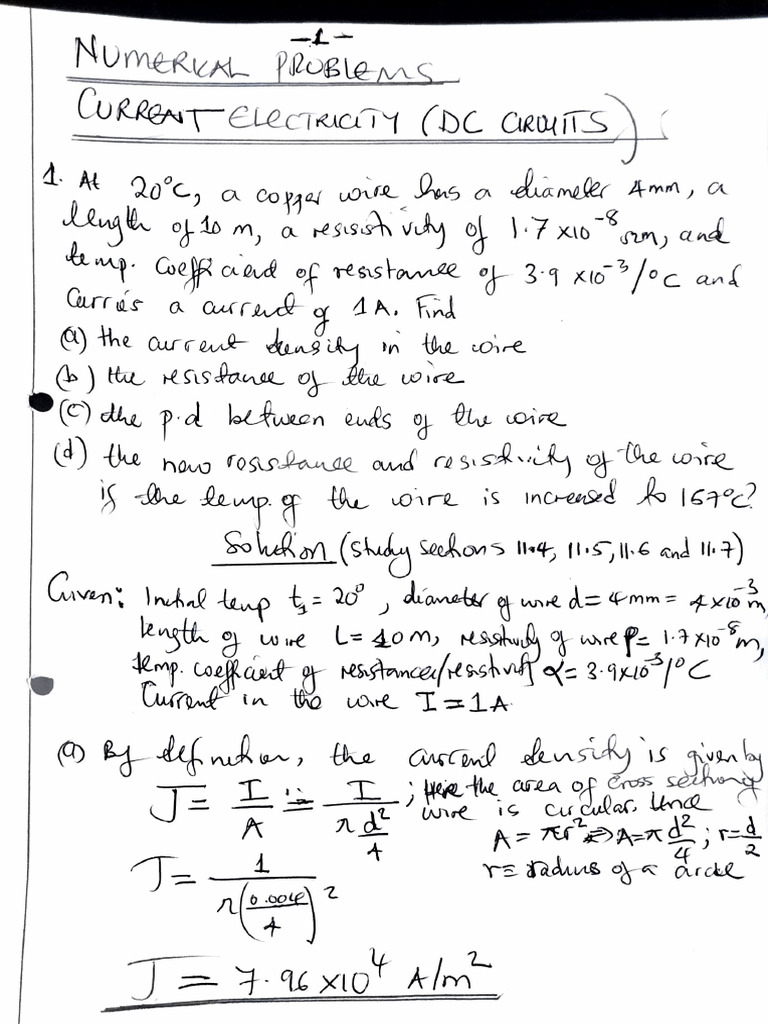 -1-
NUMERICAL PROBLEMS
CURRENT ELECTRICITY (DC CIRCUITS)
1. At 20°C, a copper wire has a diameter 4mm, a
length of 10 m, a resistivity of 1.7 ×10⁻⁸ Ωm, and
temp. coefficient of resistance of 3.9 ×10⁻³/°C and
carries a current of 1A. Find
(a) the current density in the wire
(b) the resistance of the wire
(c) the p.d between ends of the wire
(d) the new resistance and resistivity of the wire
if the temp. of the wire is increased to 167°C?
Solution (study sections 11.4, 11.5, 11.6 and 11.7)
Given: Initial temp t₁ = 20°, diameter of wire d = 4mm = 4×10⁻³ m,
length of wire L = 10m, resistivity of wire ρ = 1.7×10⁻⁸ m,
temp. coefficient of resistance/resistivity α = 3.9×10⁻³/°C
Current in the wire I = 1A
(a) By definition, the current density is given by
J = I/A = I/(π d²/4) ; Here the area of cross section of
wire is circular. Hence
A = πr² ⇒ A = π d²/4 ; r = d/2
r ≡ radius of a circle
J = 1/(π(0.004/4)²)
J = 7.96 ×10⁴ A/m²